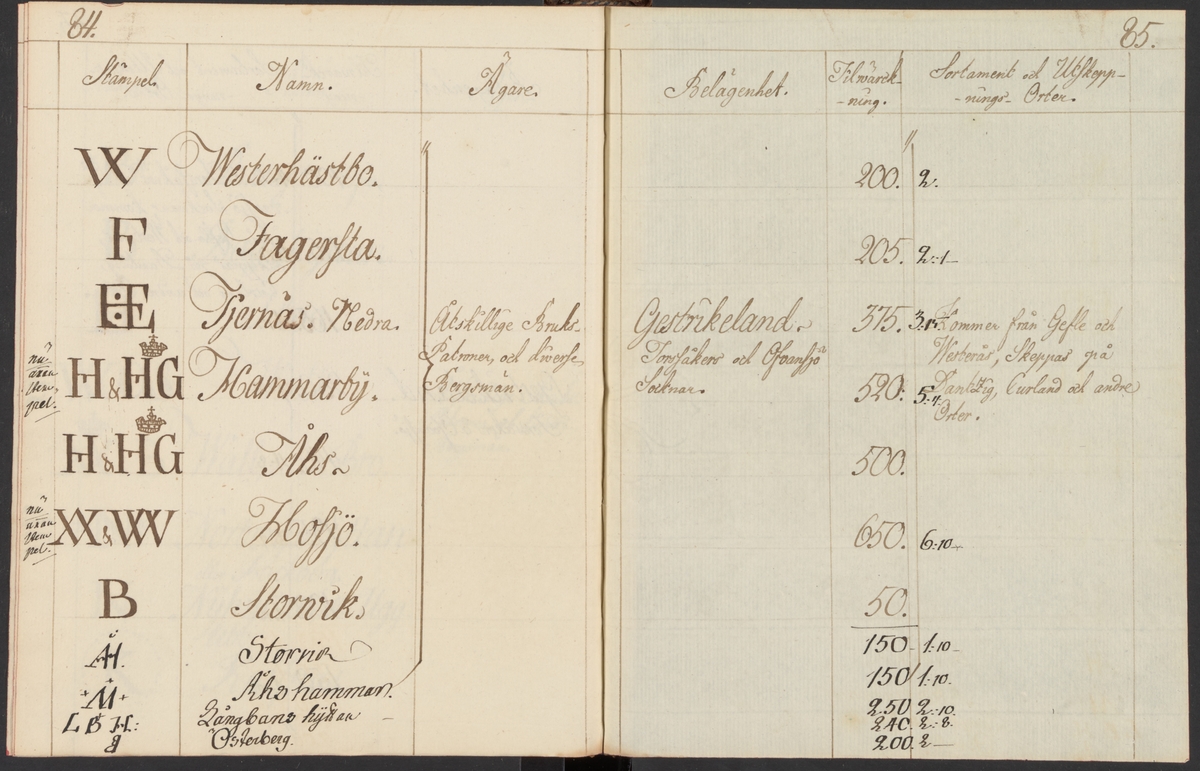 84.
85.
Stämpel. Namn. Ägare. Belägenhet. Tilwärck-
-ning.
Sortament och Utskepp-
-nings- Orter.
W Westerhästbo. 200. 2.
F Fagersta. 205. 2:1
Tjernäs. Nedra. Åtskillige Bruks- Gestrikeland. 375. 3:15 Kommer från Gefle och
Patroner, och diverse Torsåkers och Ofvansjö Westerås, Skeppas på
nu
annan
Stem
pel.
H & HG Hammarby. Bergsmän. Socknar. 520: 5:4 Dantzig, Curland och andre
Orter.
H & HG Åhs 500.
nu
annan
Stem
pel.
XX & WW Hosjö. 650. 6:10
B Storvik. 50.
ÅH. Storvik 150 1:10
M Åhs hammar. 150 1:10.
LBH: Långbans hyttan 250 2:10.
240 2:8.
Österberg. 200. 2